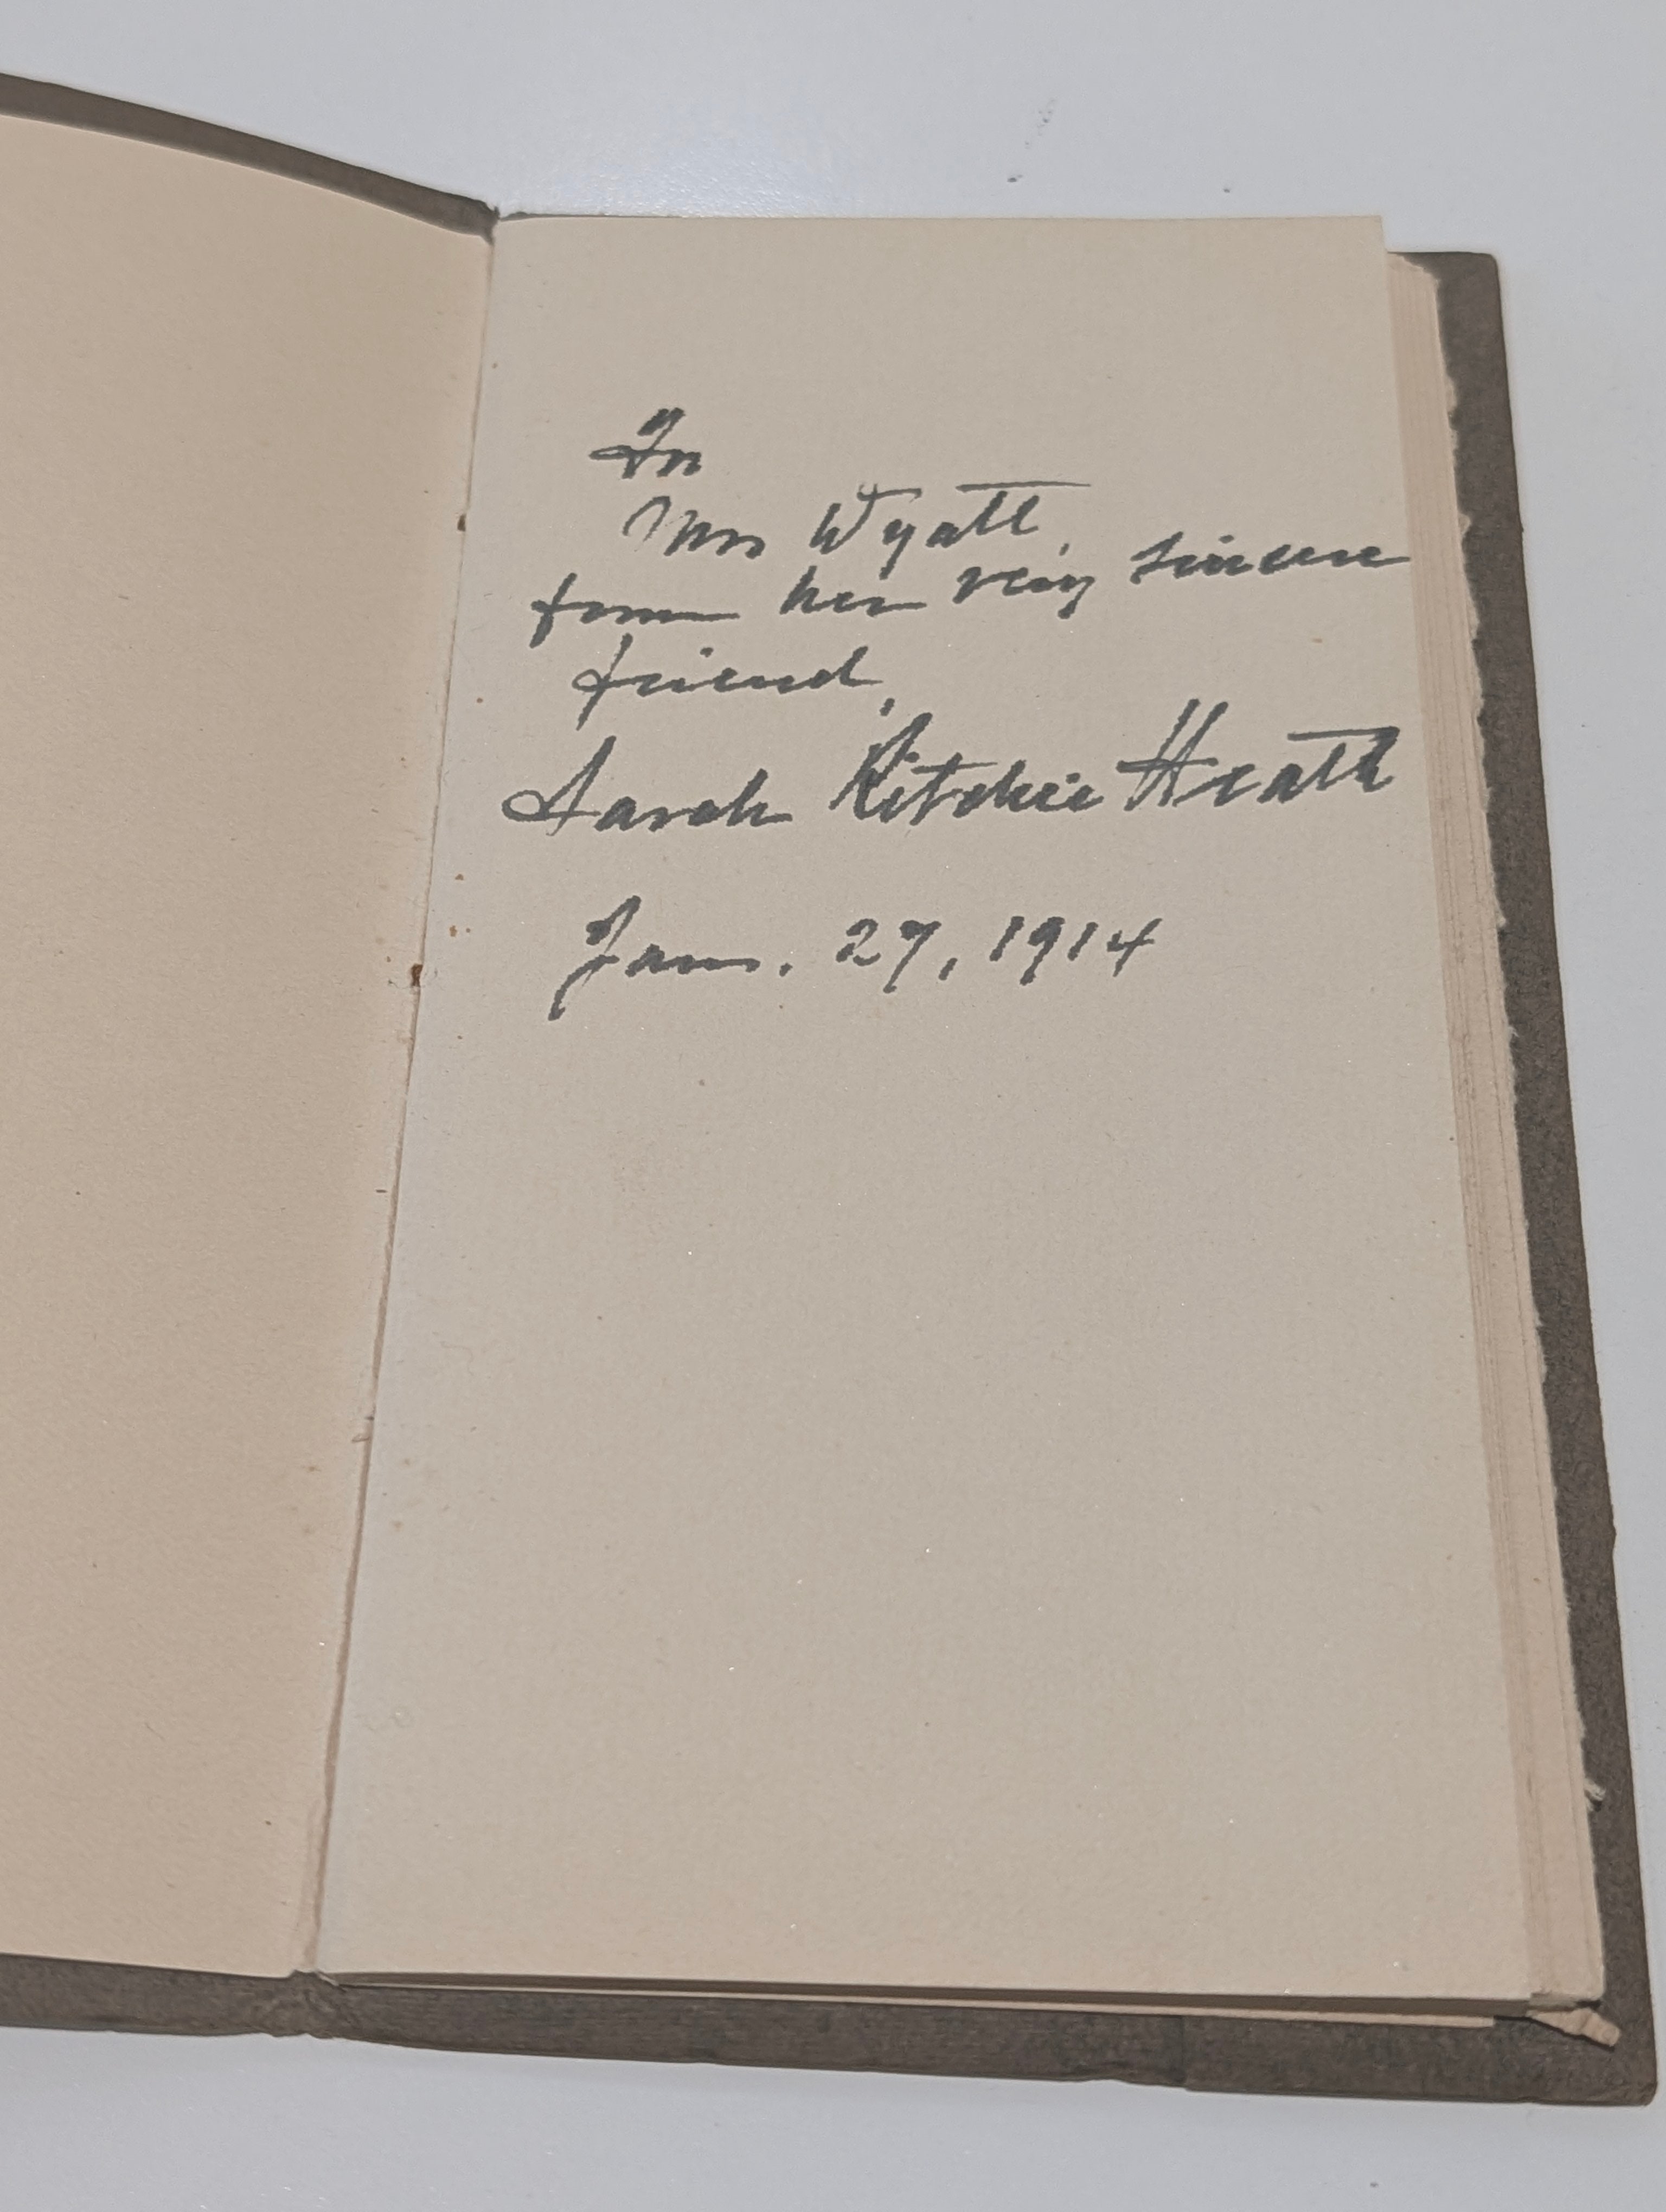 To
Mrs Wyatt,
from her very sincere
friend,
Sarah Ritchie Heath
Jan. 27, 1914